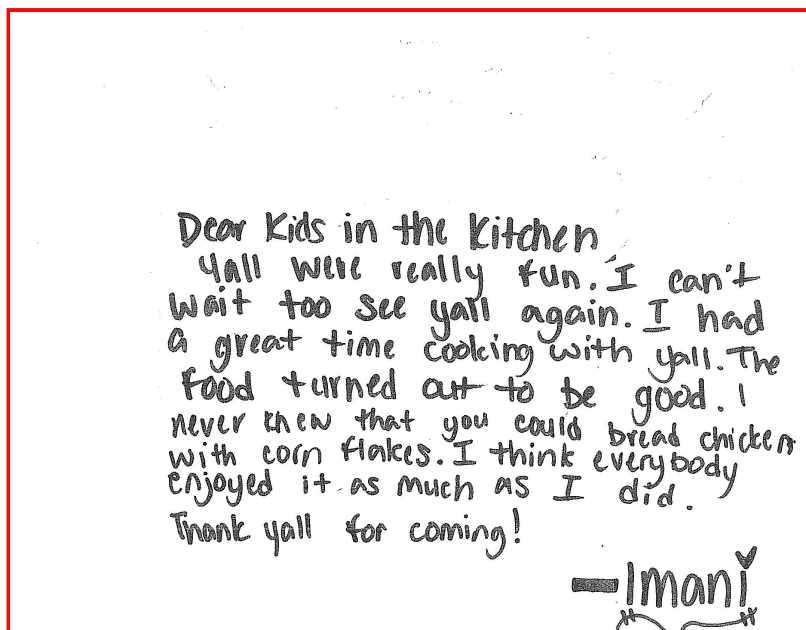 Dear Kids in the Kitchen
Yall were really fun. I can't
wait too see yall again. I had
a great time cooking with yall. The
food turned out to be good. I
never knew that you could bread chicken
with corn flakes. I think everybody
enjoyed it as much as I did.
Thank yall for coming!
-Imani